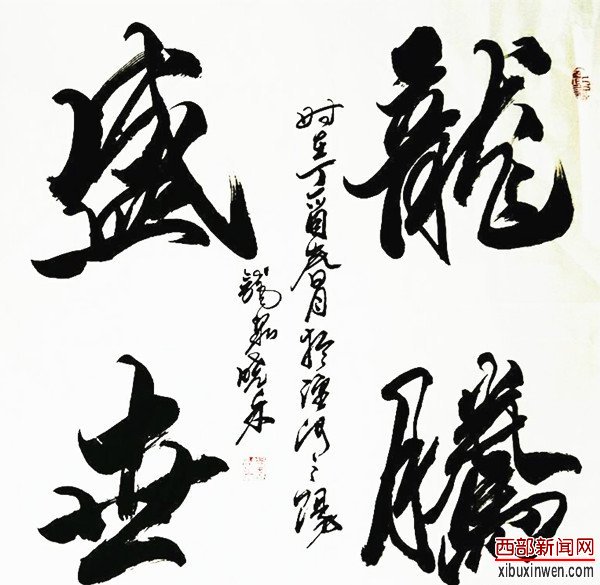 龍騰
盛世
时在丁酉春月於涇河之陽
龍泉曉禾
西部新闻网
xibuxinwen.com